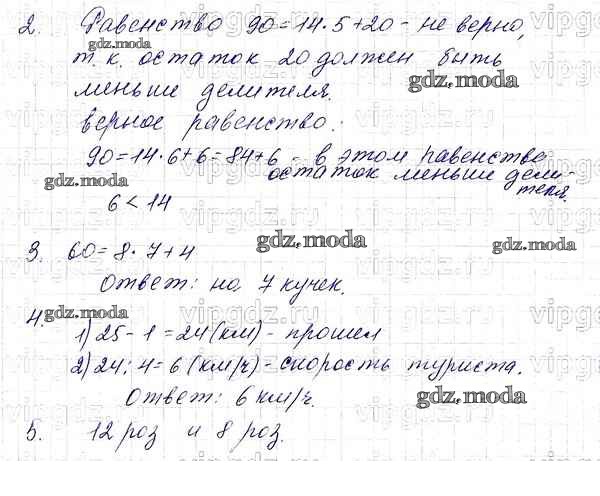 2. Равенство 90=14·5+20 - не верно,
gdz.moda
т.к. остаток 20 должен быть
gdz.moda
меньше делителя.
верное равенство:
90=14·6+6=84+6 - в этом равенстве
gdz.moda
остаток меньше дели-
теля.
6<14
gdz.moda
gdz.moda
3. 60=8·7+4
Ответ: на 7 кучек.
4. gdz.moda
1) 25-1=24(км) - прошел
2) 24:4=6(км/ч) - скорость туриста.
Ответ: 6 км/ч.
gdz.moda
5. 12 роз и 8 роз.